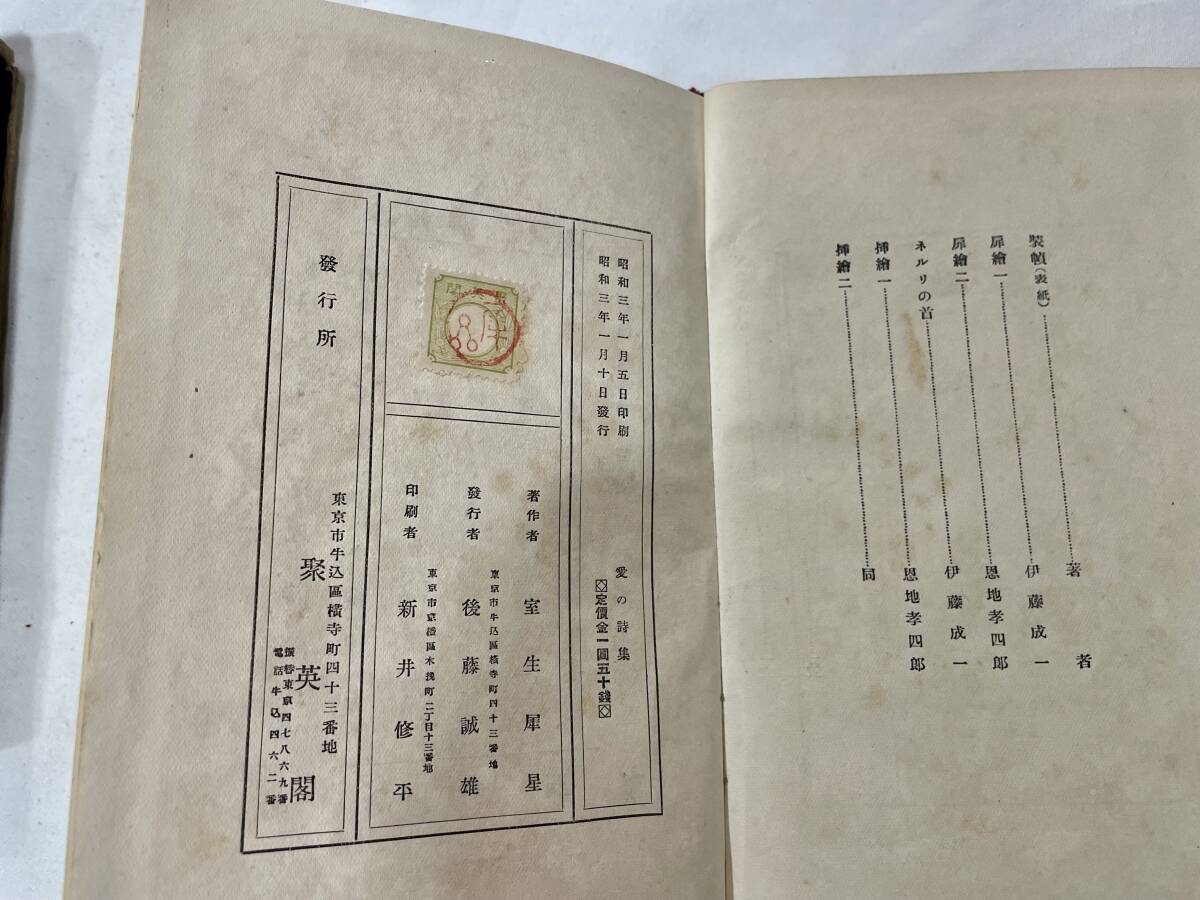 裝幀(表紙)……………………著者
扉繪一……………………伊藤成一
扉繪二……………………恩地孝四郎
ネルリの首……………………伊藤成一
挿繪一……………………恩地孝四郎
挿繪二……………………同
昭和三年一月五日印刷
昭和三年一月十日發行
愛の詩集
定價金一圓五十錢
著作者 室生犀星
東京市牛込區橫寺町四十三番地
發行者 後藤誠雄
東京市京橋區木挽町二丁目十三番地
印刷者 新井修平
發行所
東京市牛込區橫寺町四十三番地
聚英閣
振替東京四七八六九番
電話牛込四六二番